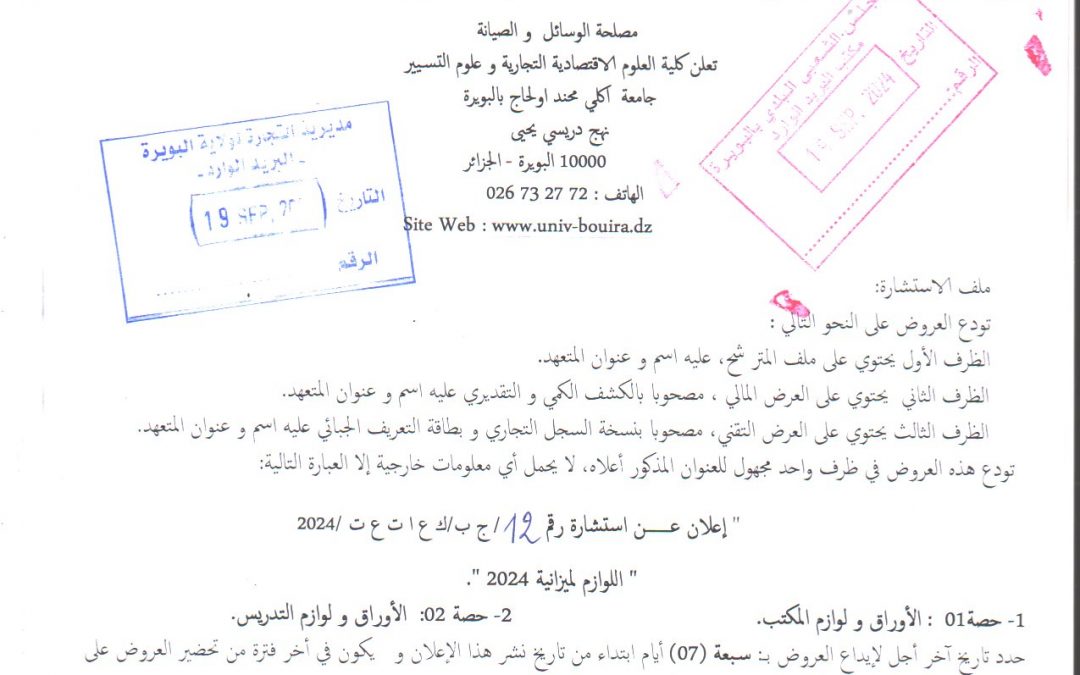 مصلحة الوسائل و الصيانة
تعلن كلية العلوم الاقتصادية التجارية و علوم التسيير
جامعة اكلي محند اولحاج بالبويرة
نهج دريسي يحيى
10000 البويرة - الجزائر
الهاتف : 72 27 73 026
Site Web : www.univ-bouira.dz
مديرية التجارة لولاية البويرة
- البريد الوارد -
التاريخ
19 SEP. 20
الرقم
المجلس الشعبي البلدي بالبويرة
مكتب البريد الوارد
التاريخ
19 SEP. 2024
الرقم
ملف الاستشارة:
تودع العروض على النحو التالي :
الظرف الأول يحتوي على ملف المترشح، عليه اسم و عنوان المتعهد.
الظرف الثاني يحتوي على العرض المالي ، مصحوبا بالكشف الكمي و التقديري عليه اسم و عنوان المتعهد.
الظرف الثالث يحتوي على العرض التقني، مصحوبا بنسخة السجل التجاري و بطاقة التعريف الجبائي عليه اسم و عنوان المتعهد.
تودع هذه العروض في ظرف واحد مجهول للعنوان المذكور أعلاه، لا يحمل أي معلومات خارجية إلا العبارة التالية:
" إعلان عـــن استشارة رقم 12/ ج ب/ك ع ا ت ع ت /2024
" اللوازم لميزانية 2024 ".
1- حصة01 : الأوراق و لوازم المكتب. 2- حصة 02: الأوراق و لوازم التدريس.
حدد تاريخ آخر أجل لإيداع العروض بـ: سبعة (07) أيام ابتداء من تاريخ نشر هذا الإعلان و يكون في أخر فترة من تحضير العروض على